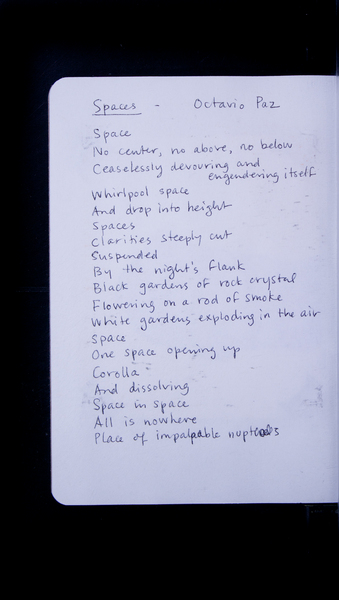 Spaces - Octavio Paz
Space
No center, no above, no below
Ceaselessly devouring and
engendering itself
Whirlpool space
And drop into height
Spaces
Clarities steeply cut
Suspended
By the night's flank
Black gardens of rock crystal
Flowering on a rod of smoke
White gardens exploding in the air
Space
One space opening up
Corolla
And dissolving
Space in space
All is nowhere
Place of impalpable nuptials